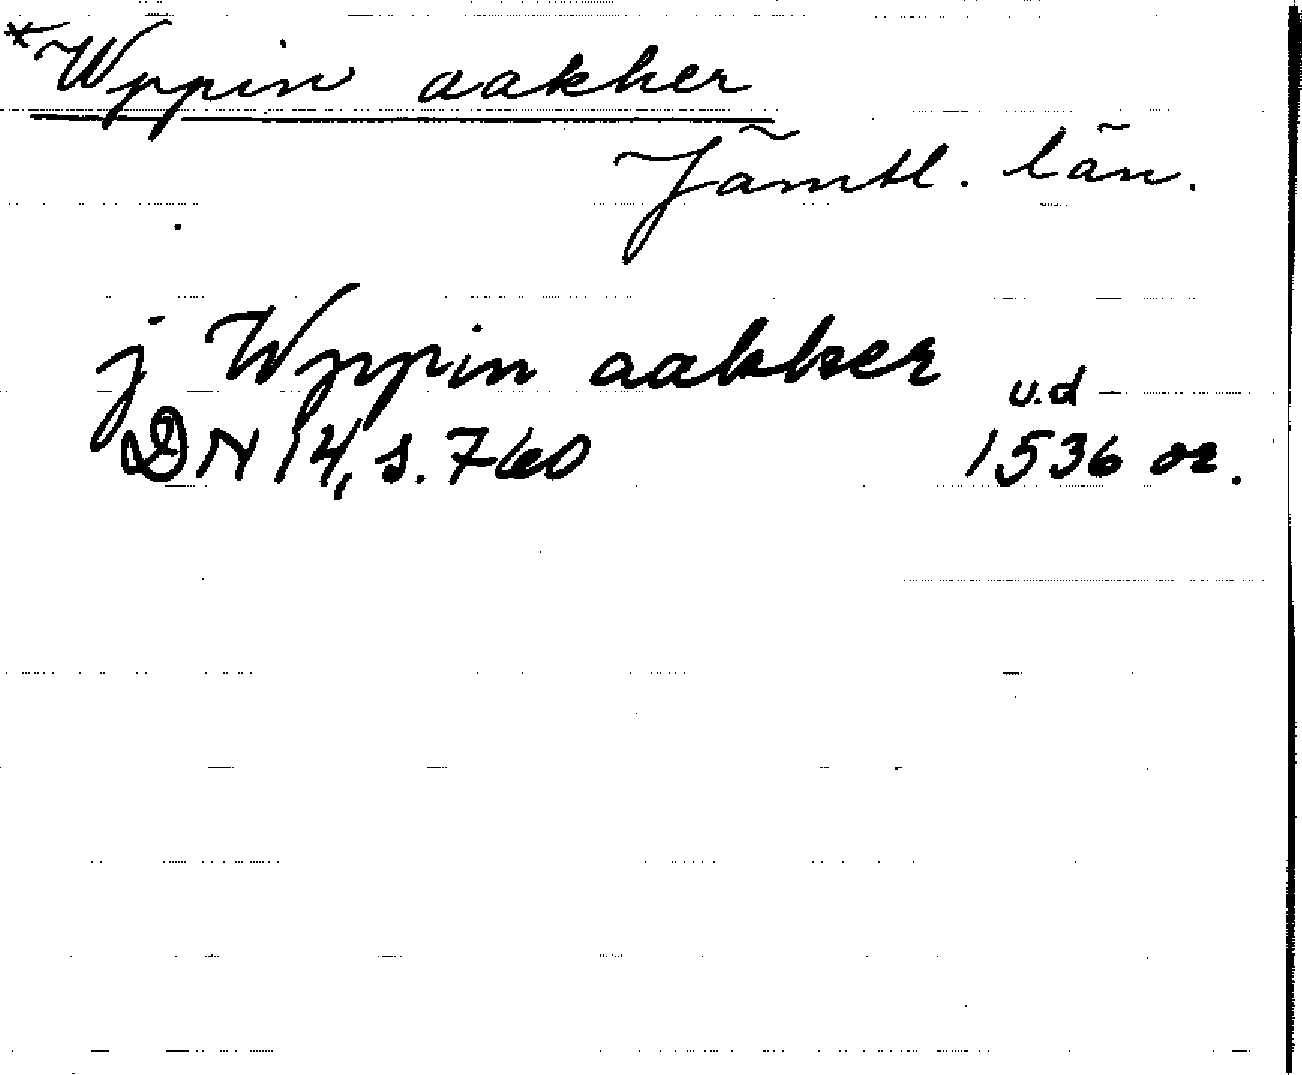 *Wppin aakher
Jämtl. län.
j Wppin aakher
u.d
DN 14, s. 760 1536 or.